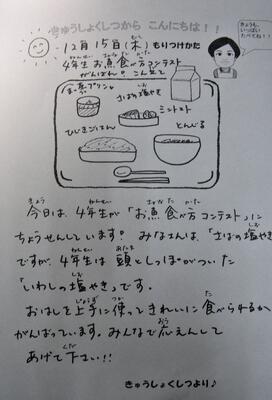 きゅうしょくしつから こんにちは!!
きょうも、
いっぱい
たべてね!!
12月15日(木) もりつけかた
4年生 お魚食べ方コンテスト
がんばれ。こん立て
さばの塩やき
ミニトマト
ひじきごはん
とんじる
今日は、4年生が「お魚食べ方コンテスト」に
ちょうせんしています。みなさんは、「さばの塩やき」
ですが、4年生は頭としっぽがついた
「いわしの塩やき」です。
おはしを上手に使ってきれいに食べられるか
がんばっています。みんなで応えんして
あげて下さい!!
きゅうしょくしつより♪